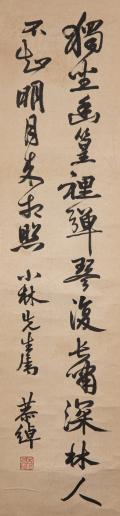 獨坐幽篁裡彈琴復長嘯深林人
不知明月來相照 小林先生屬 恭綽